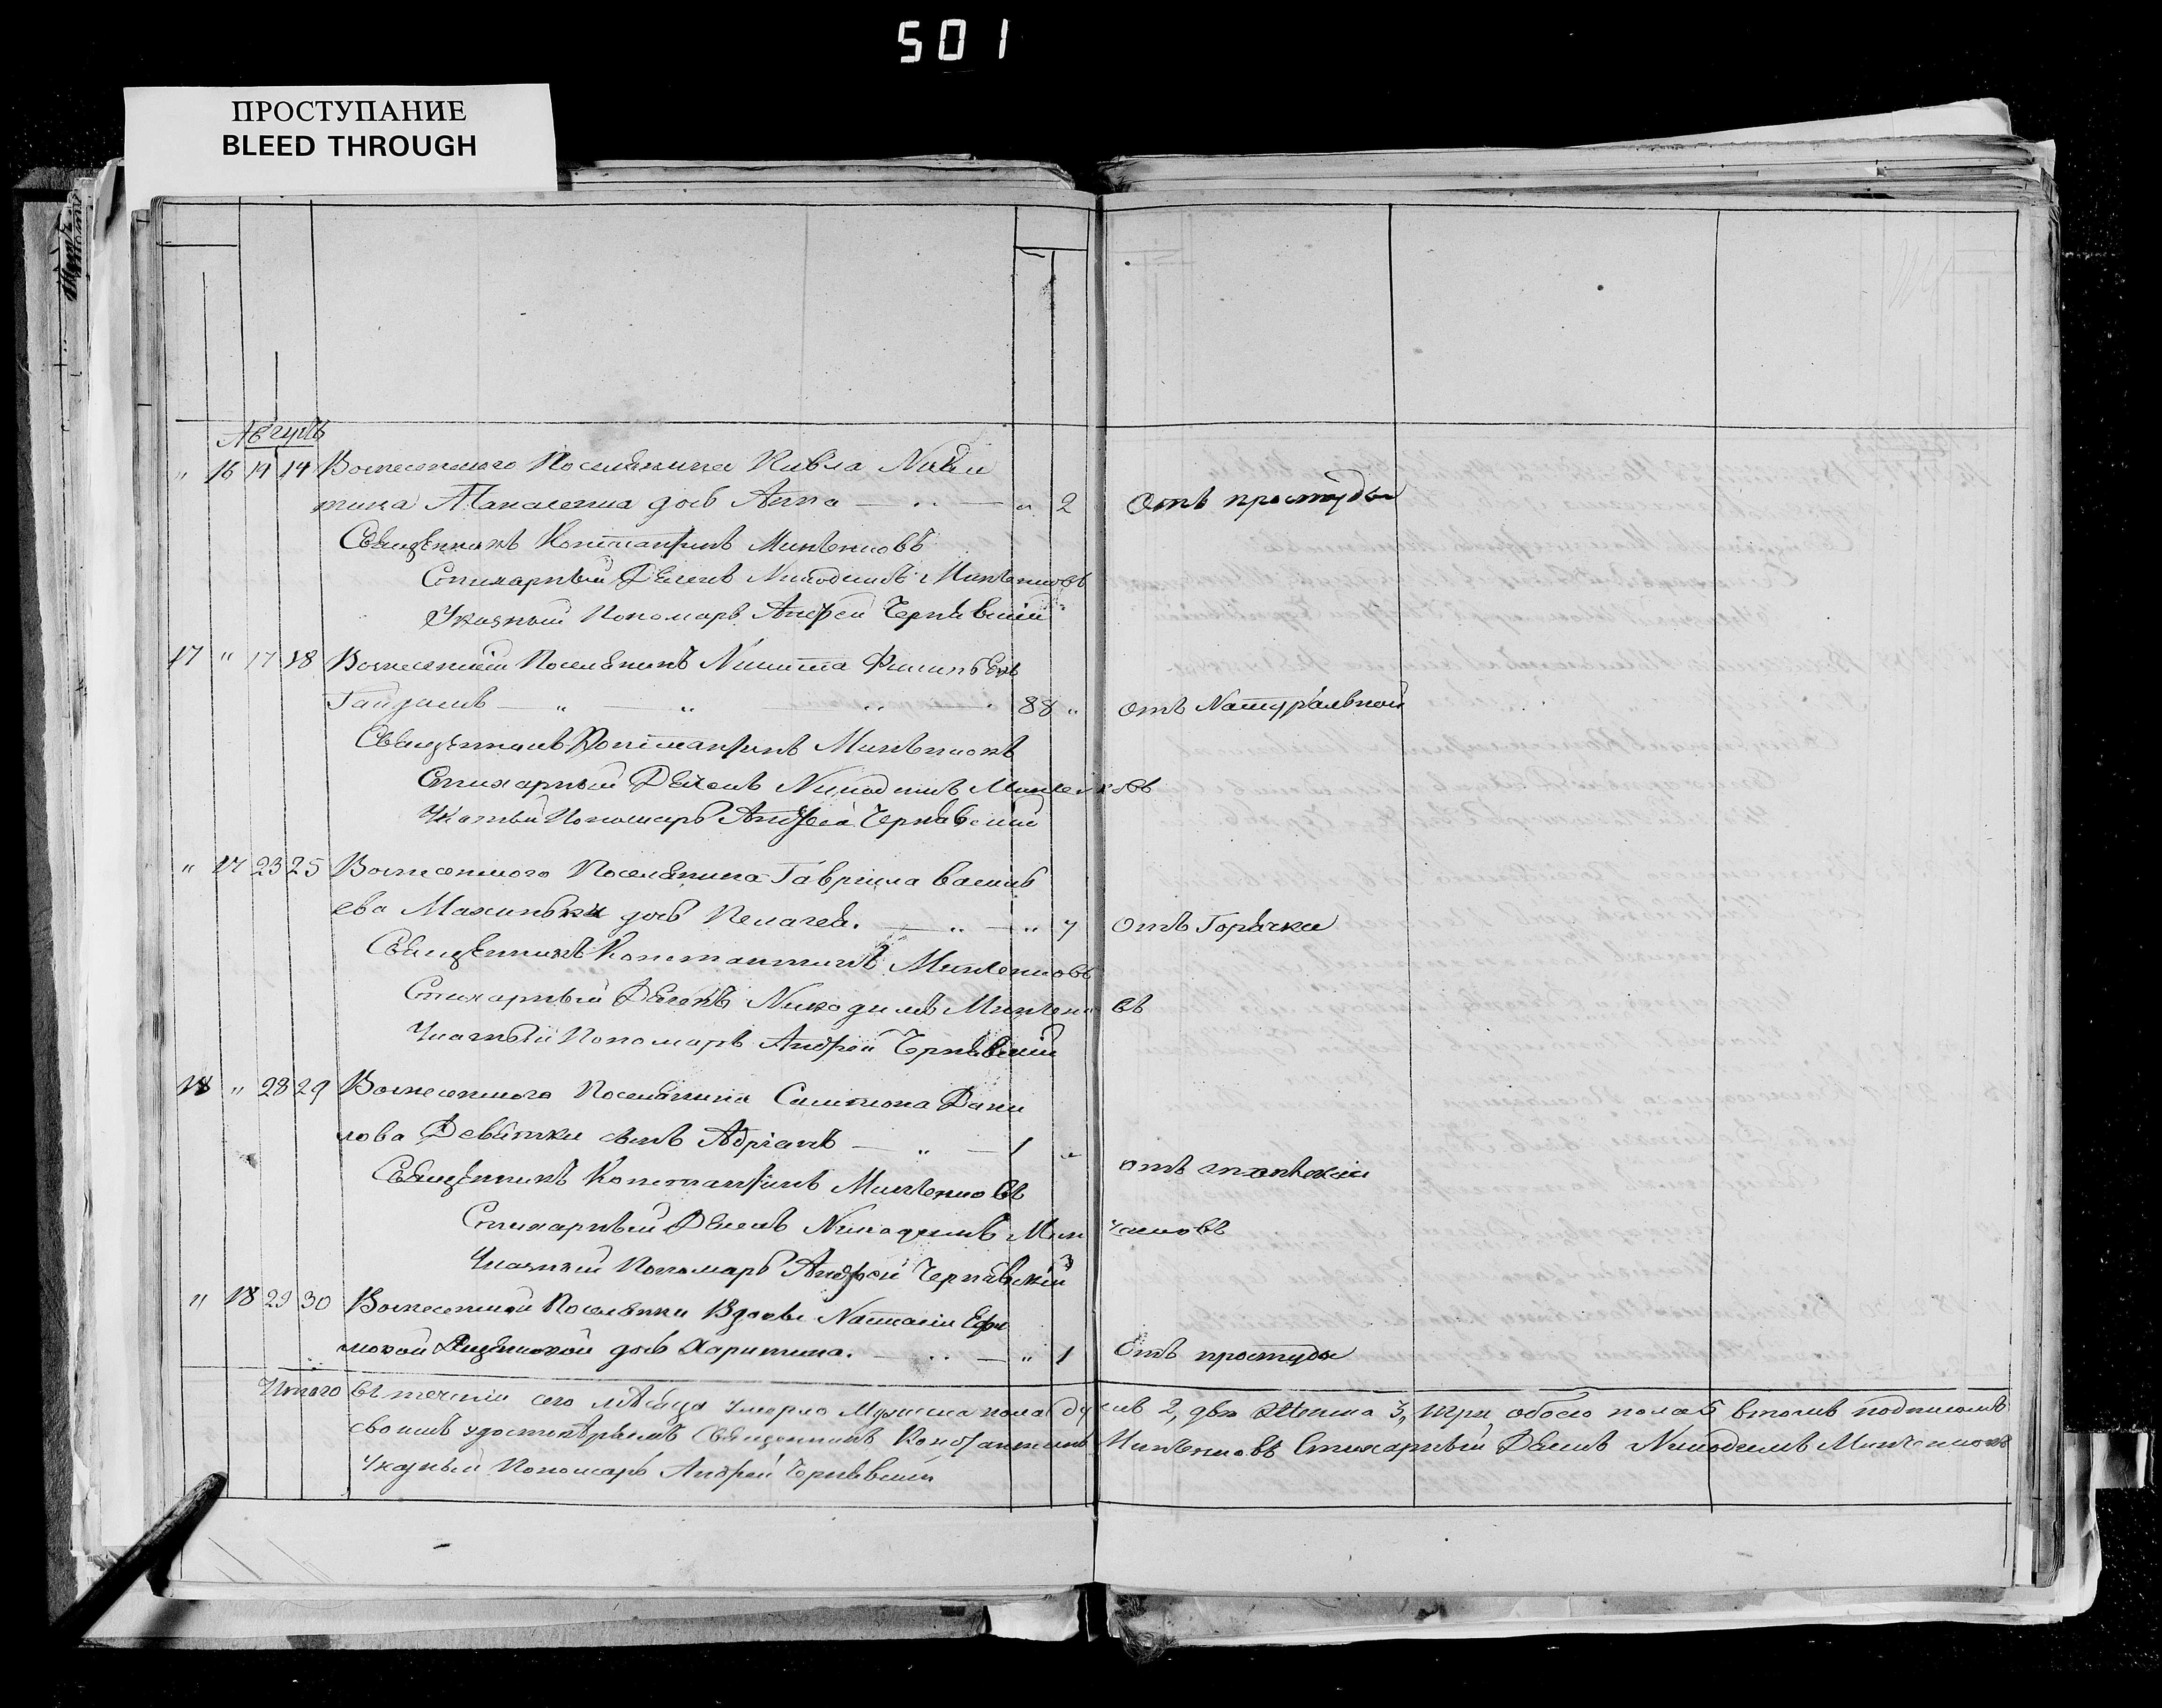 501
ПРОСТУПАНИЕ
BLEED THROUGH
Августъ
" 16 14 14 Вознесенского Поселянина Павла Ники
тина дочь Анна — " — " 2 Отъ простуды
Священникъ Константинъ Минченковъ
Стихарный Дьячекъ Никодимъ Минченковъ
Указный Пономарь Андрей Чернявский
17 " 17 18 Вознесенский Поселянинъ Никита Филипъевъ
Гайдашъ — " — " — " 88 " отъ Натуральной
Священникъ Константинъ Минченковъ
Стихарный Дьячекъ Никодимъ Минченковъ
Указный Пономарь Андрей Чернявский
" 17 23 25 Вознесенского Поселянина Гаврiила Василь
ева дочь Пелагея. — " — " 7 Отъ Горячки
Священникъ Константинъ Минченковъ
Стихарный Дьячекъ Никодимъ Минченковъ
Указный Пономарь Андрей Чернявский
18 " 28 29 Вознесенского Поселянина Самсона Дани
лова Девятки сынъ Адрiанъ — " — 1 " отъ
Священникъ Константинъ Минченковъ
Стихарный Дьячекъ Никодимъ Минченковъ
Указный Пономарь Андрей Чернявскiй
" 18 29 30 Вознесенской Поселянки Вдовы Наталiи Ефи
мовой дочь Харитина. — " — " 1 Отъ простуды
Итого въ теченiи сего мѣсяца умерло Мужеска пола душъ 2, два Женска 3, три, обоего пола 5 в томъ подписомъ
своимъ Священникъ Константинъ Минченковъ Стихарный Дьячекъ Никодимъ Минченковъ
Указный Пономарь Андрей Чернявскiй